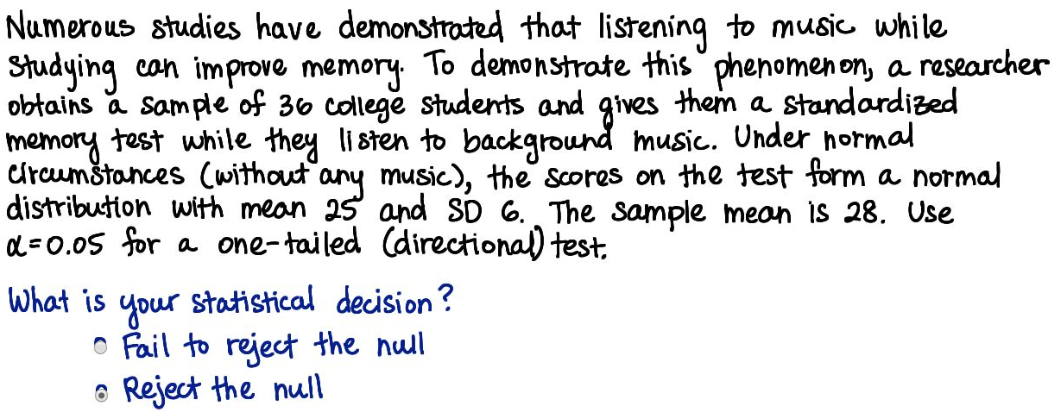 Numerous studies have demonstrated that listening to music while
studying can improve memory. To demonstrate this phenomenon, a researcher
obtains a sample of 36 college students and gives them a standardized
memory test while they listen to background music. Under normal
circumstances (without any music), the scores on the test form a normal
distribution with mean 25 and SD 6. The sample mean is 28. Use
α=0.05 for a one-tailed (directional) test.
What is your statistical decision?
Fail to reject the null
Reject the null